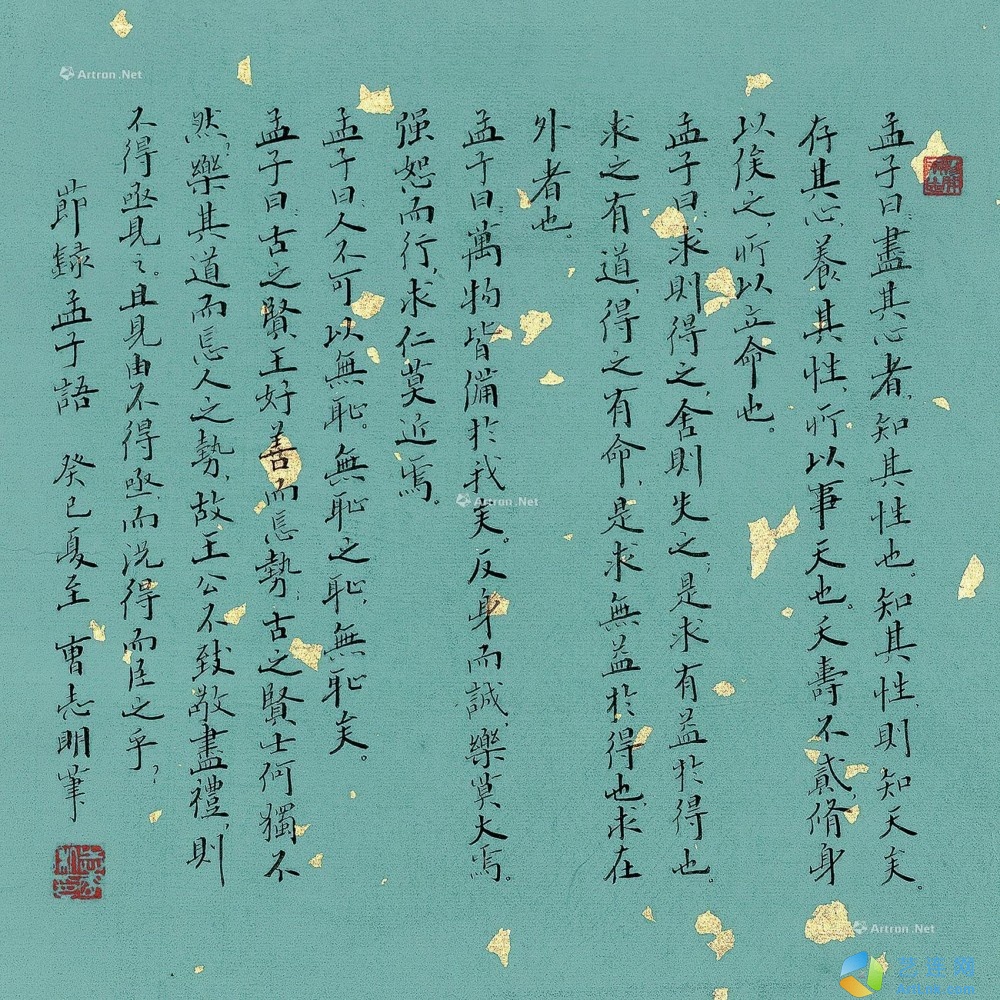 孟子曰：盡其心者，知其性也。知其性，則知天矣。
存其心，養其性，所以事天也。夭壽不貳，脩身
以俟之，所以立命也。
孟子曰：求則得之，舍則失之，是求有益於得也。
求之有道，得之有命，是求無益於得也，求在
外者也。
孟子曰：萬物皆備於我矣。反身而誠，樂莫大焉。
强恕而行，求仁莫近焉。
孟子曰：人不可以無恥。無恥之恥，無恥矣。
孟子曰：古之賢王好善而忘勢，古之賢士何獨不
然，樂其道而忘人之勢，故王公不致敬盡禮，則
不得亟見之。且見由不得亟，而況得而臣之乎？
節録孟子語 癸巳夏至 曹志明筆
Artron.Net
Artron.Net
Artron.Net